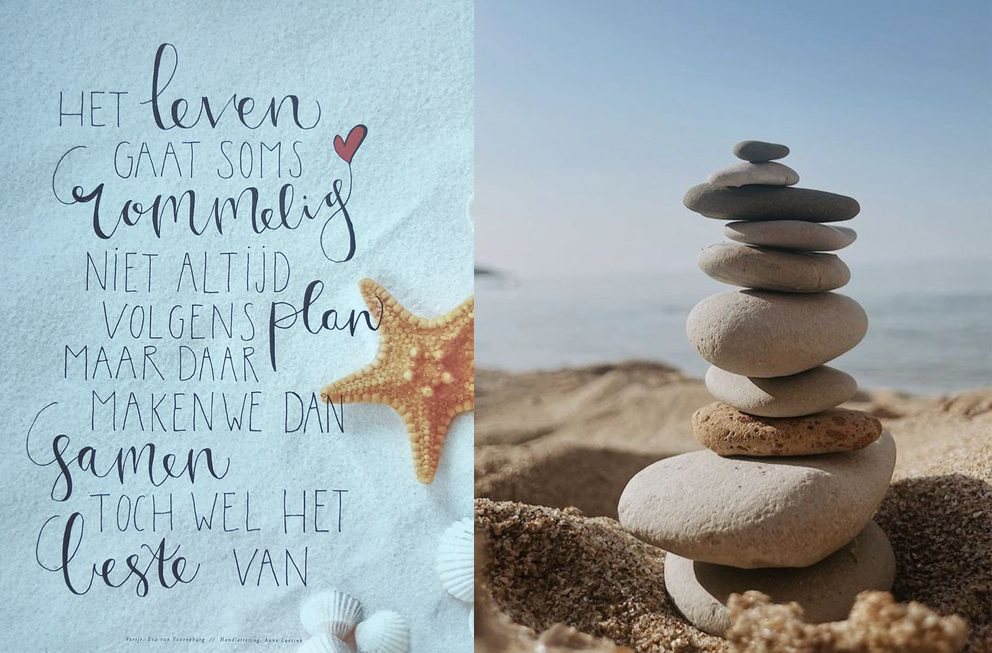 HET leven
GAAT SOMS
rommelig
NIET ALTIJD
VOLGENS plan
MAAR DAAR
MAKEN WE DAN
samen
TOCH WEL HET
beste VAN
Versje: Eva van Voorneburg // Handlettering: Anne Luesink